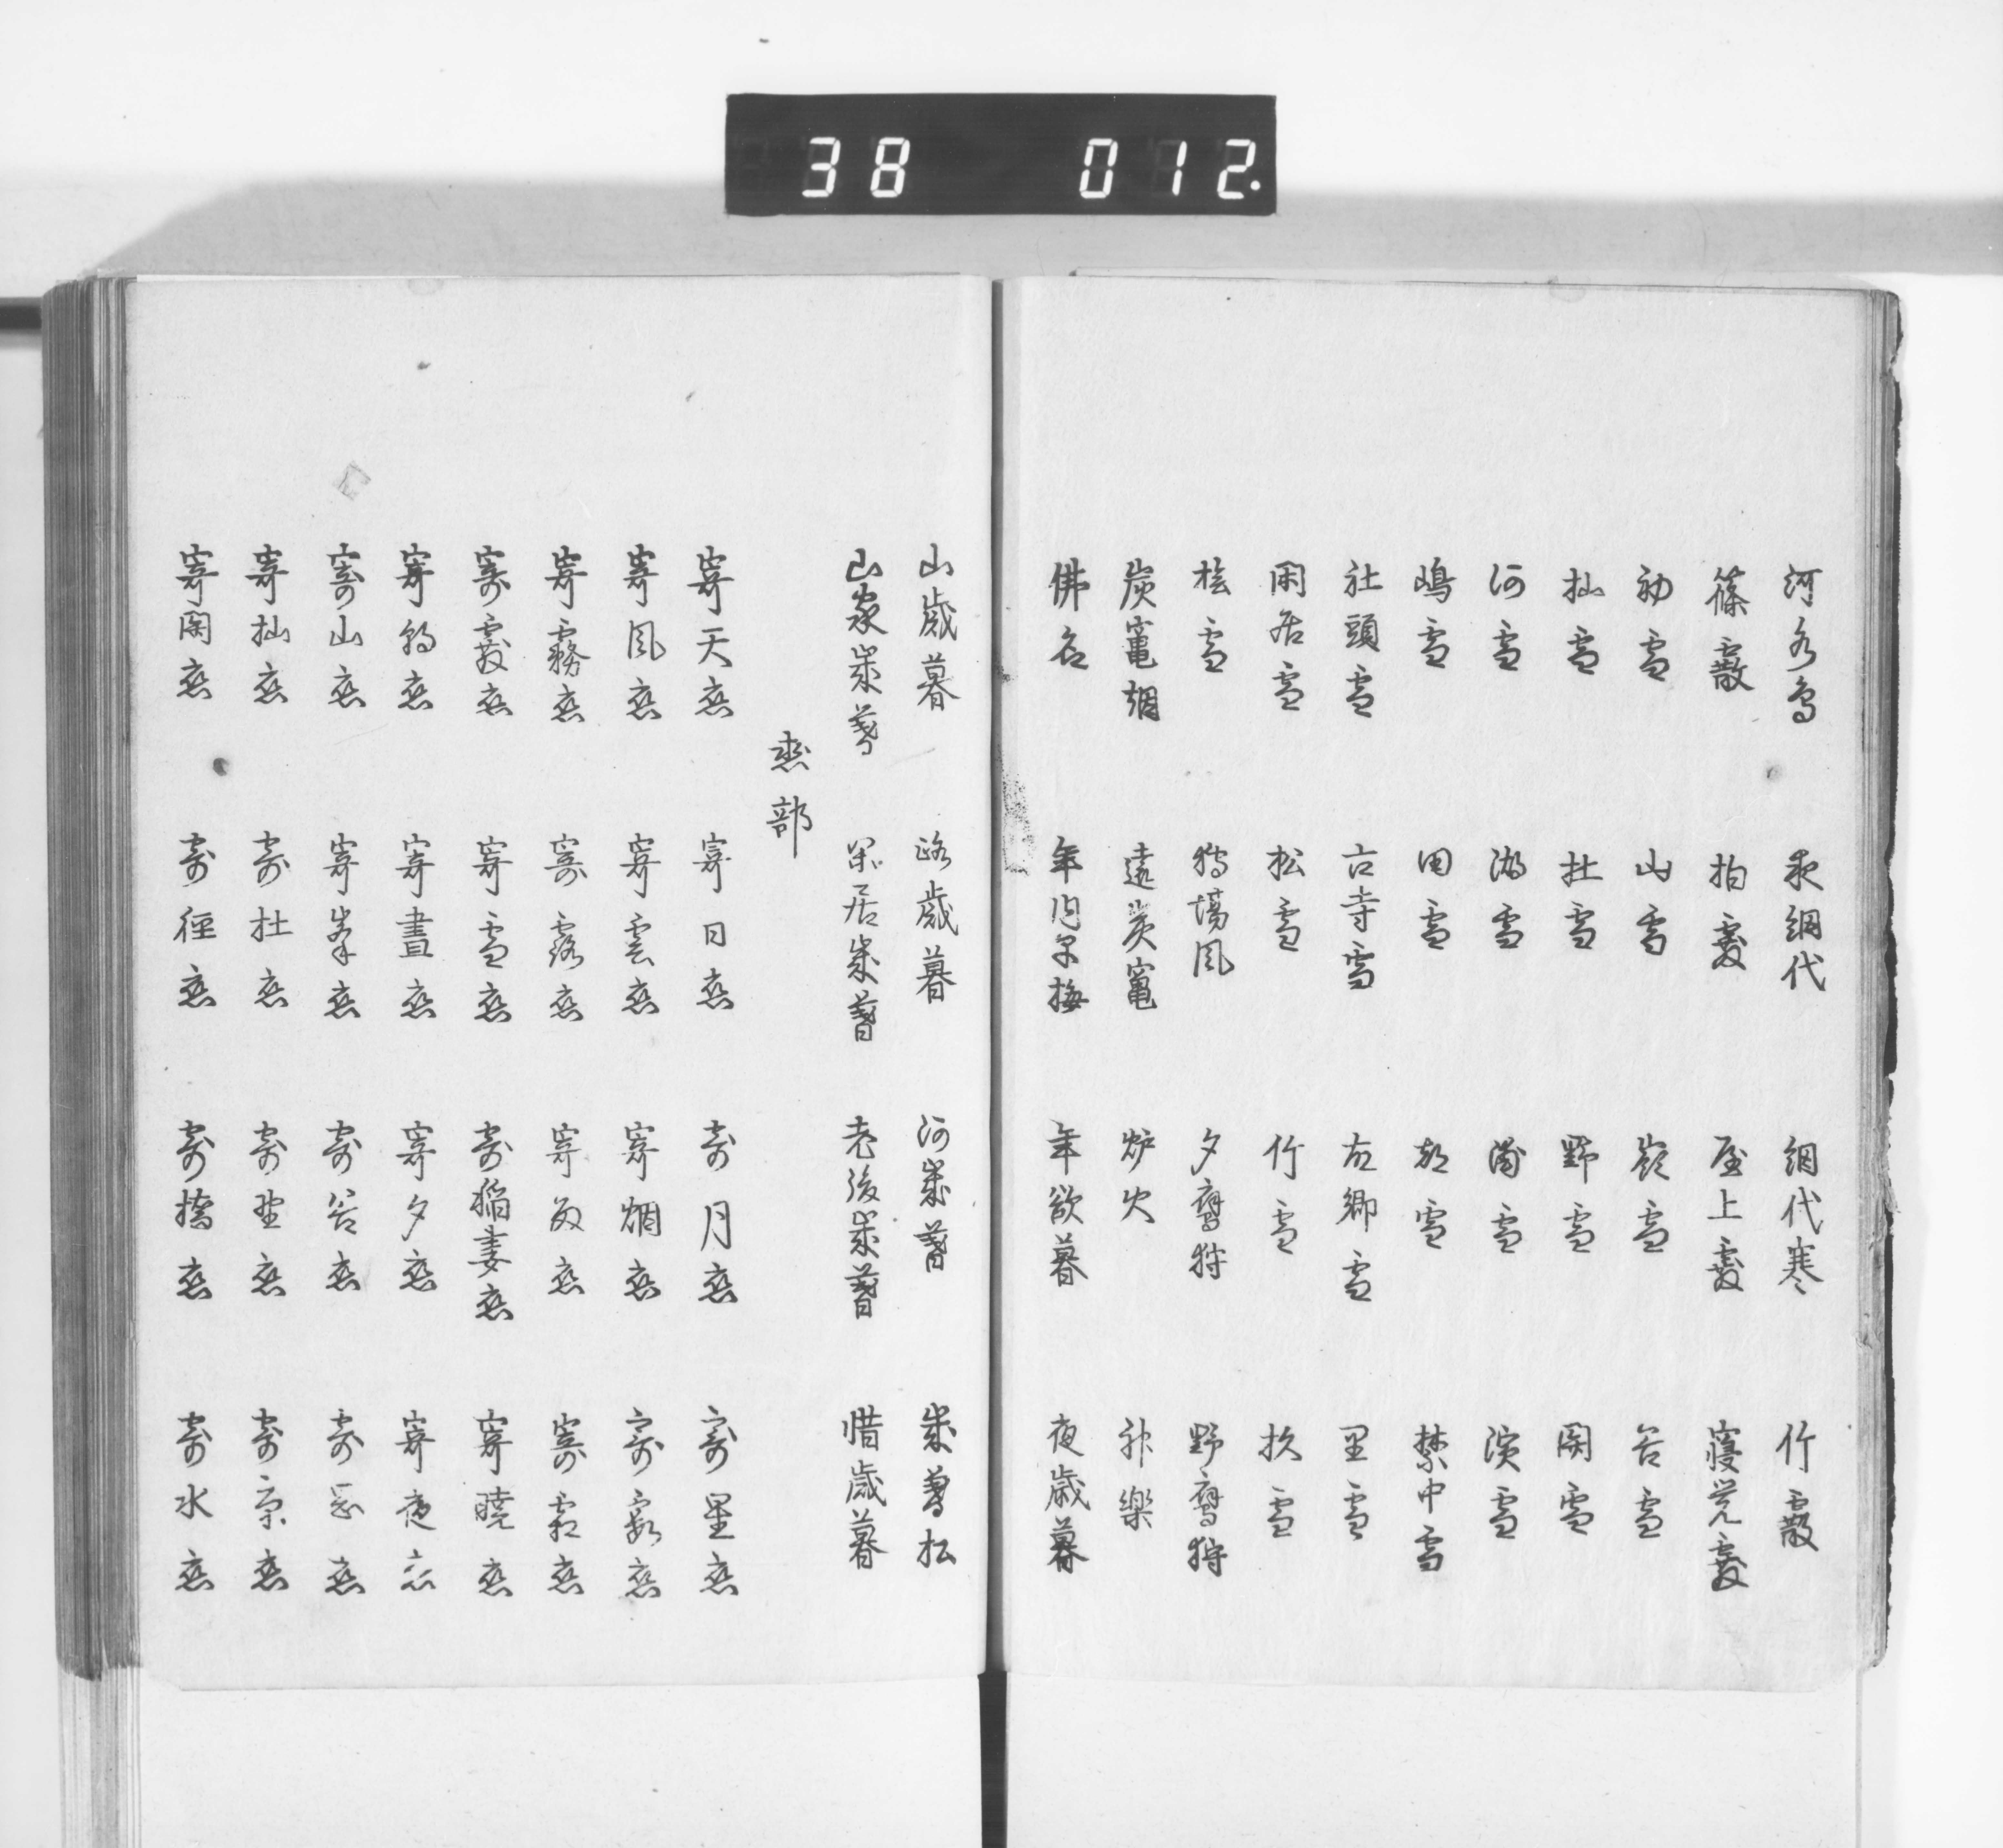 38 012.
河水鳥 夜網代 網代寒 竹霰
篠霰 柏霰 屋上霰 寝覚霰
初雪 山雪 嶺雪 谷雪
杣雪 杜雪 野雪 関雪
河雪 湖雪 浦雪 濱雪
嶋雪 田雪 都雪 禁中雪
社頭雪 古寺雪 故郷雪 里雪
閑居雪 松雪 竹雪 杉雪
桧雪 狩場風 夕鷹狩 野鷹狩
炭竃烟 遠炭竃 炉火 神樂
佛名 年内早梅 年欲暮 夜歳暮
山歳暮 路歳暮 河歳暮 歳暮松
山家歳暮 閑居歳暮 老後歳暮 惜歳暮
恋部
寄天恋 寄日恋 寄月恋 寄星恋
寄風恋 寄雲恋 寄烟恋 寄霞恋
寄霧恋 寄露恋 寄雨恋 寄霜恋
寄霰恋 寄雪恋 寄稲妻恋 寄暁恋
寄朝恋 寄晝恋 寄夕恋 寄夜恋
寄山恋 寄峯恋 寄谷恋 寄恋
寄杣恋 寄杜恋 寄野恋 寄原恋
寄関恋 寄徑恋 寄橋恋 寄水恋